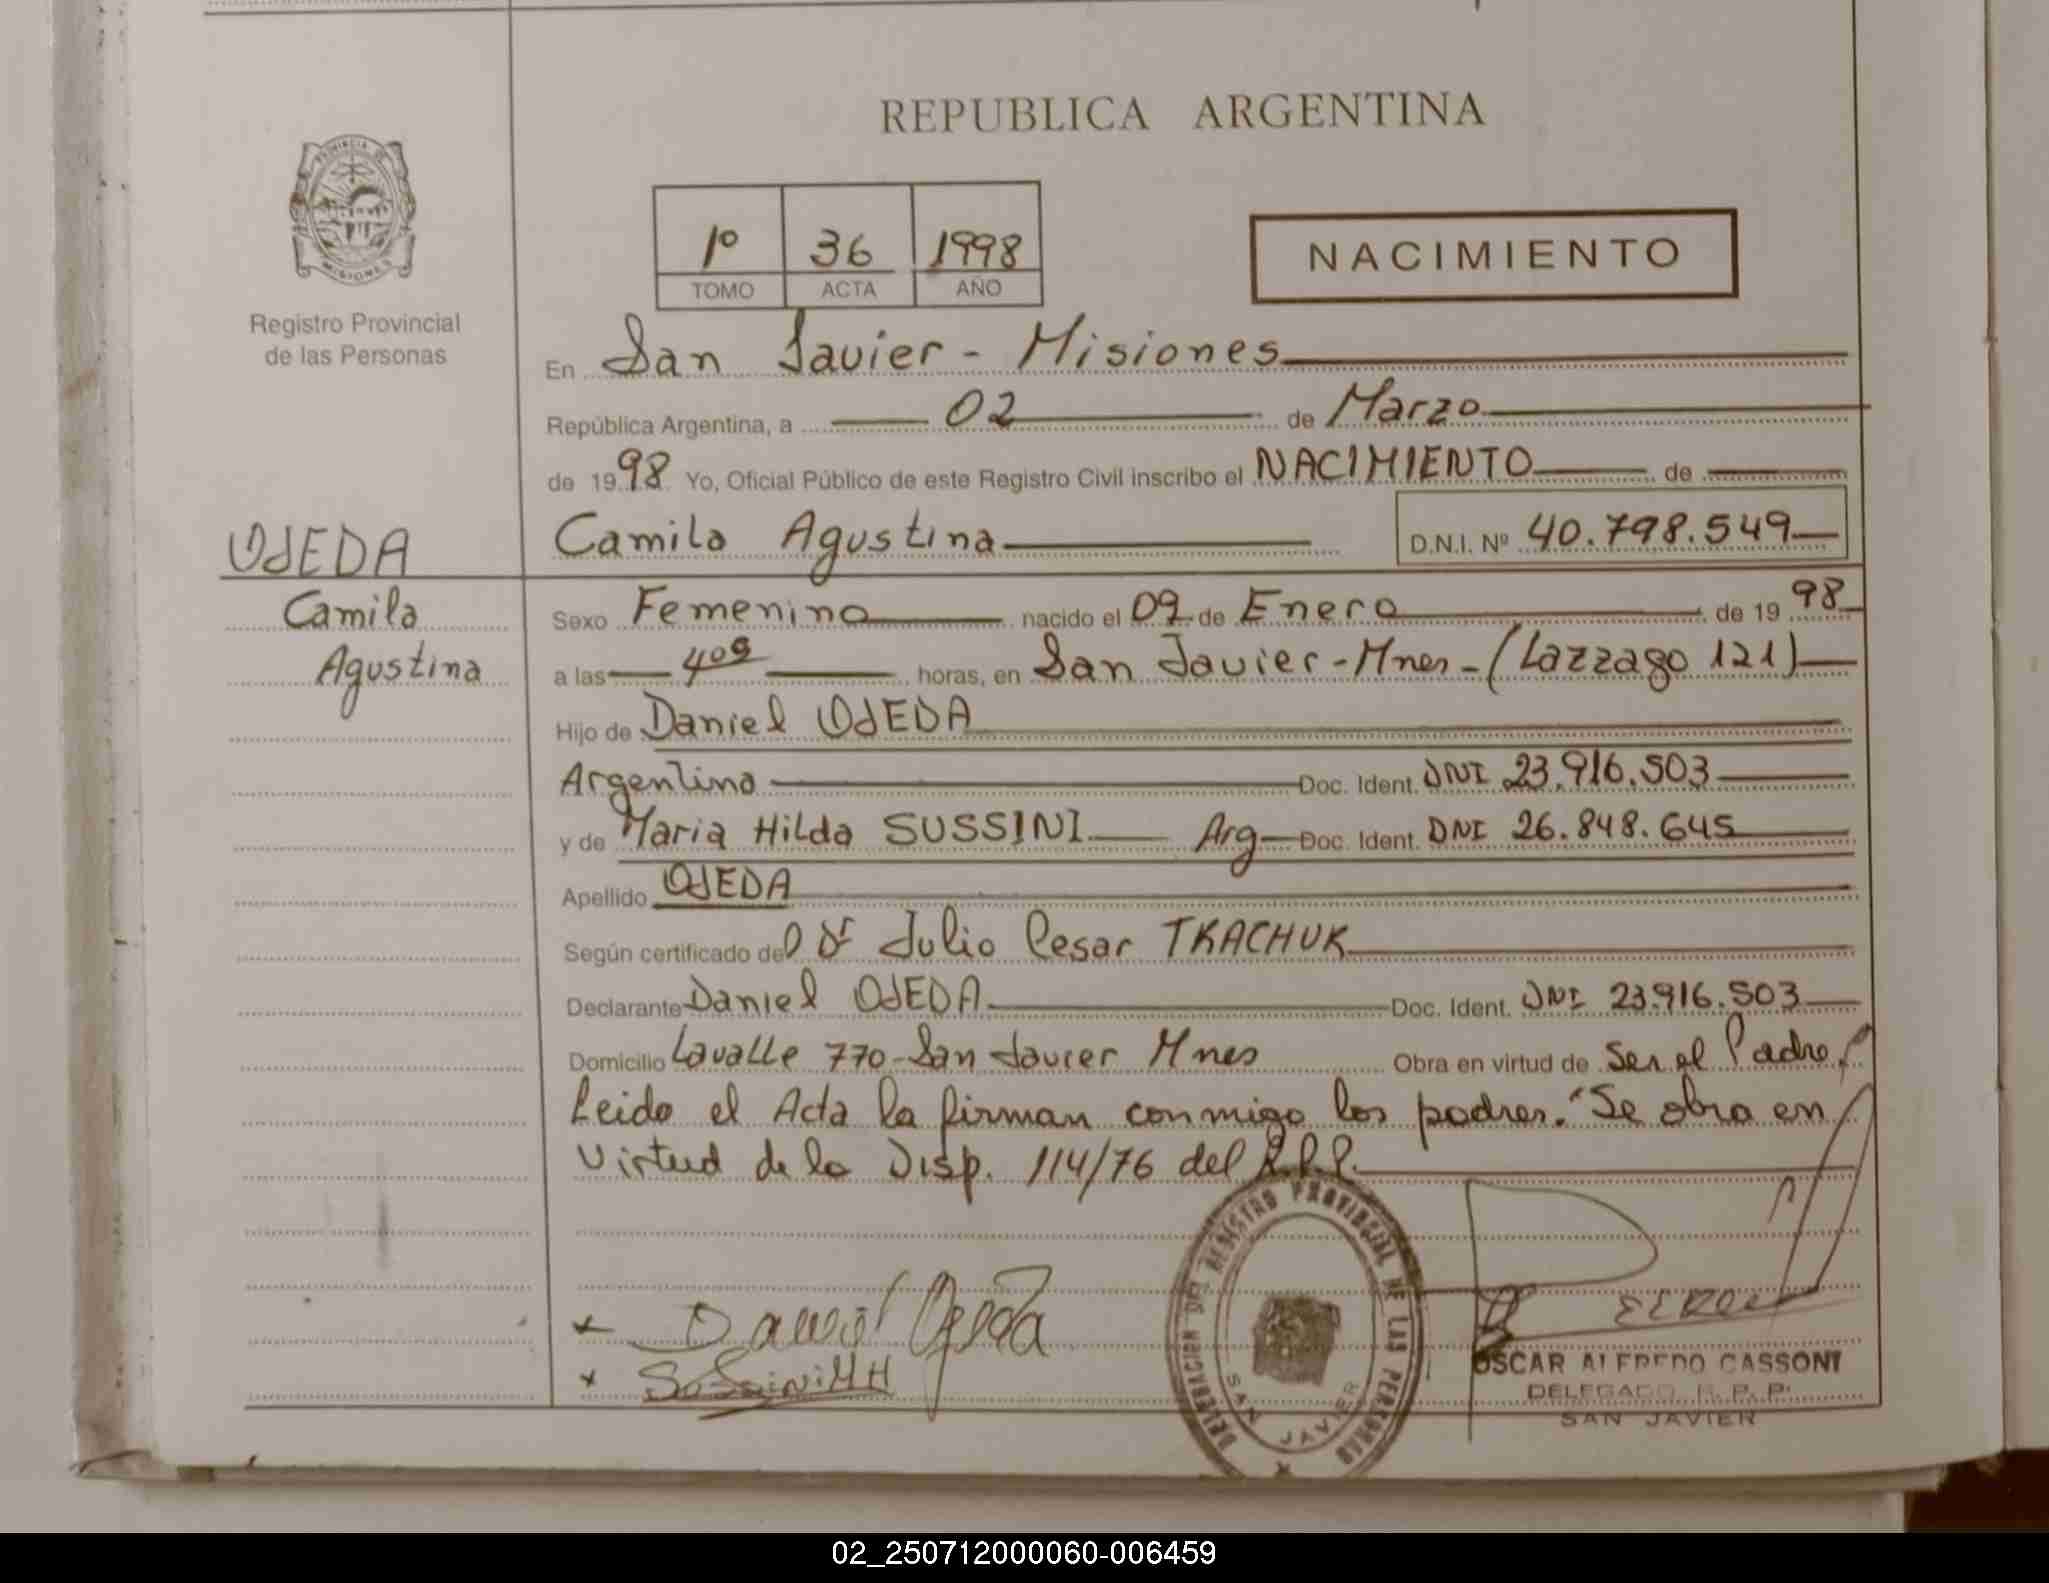 REPUBLICA ARGENTINA
PROVINCIA DE
MISIONES
Registro Provincial
de las Personas
1º 36 1998
TOMO ACTA AÑO
NACIMIENTO
En San Javier - Misiones
República Argentina, a 02 de Marzo
de 1998 Yo, Oficial Público de este Registro Civil inscribo el NACIMIENTO de
OJEDA
Camila Agustina D.N.I. Nº 40.798.549
Camila
Agustina
Sexo Femenino nacido el 09 de Enero de 1998
a las 4 05 horas, en San Javier - Mnes - (Lazzago 121)
Hijo de Daniel OJEDA
Argentino Doc. Ident. DNI 23.916.503
y de Maria Hilda SUSSINI Arg Doc. Ident. DNI 26.848.645
Apellido OJEDA
Según certificado del Dr Julio Cesar TKACHUK
Declarante Daniel OJEDA Doc. Ident. DNI 23.916.503
Domicilio Lavalle 770 - San Javier Mnes Obra en virtud de Ser el Padre
Leido el Acta la firman conmigo los padres. "Se obra en
Virtud de la Disp. 114/76 del R.P.P.
Daniel Ojeda
Sussini M H
DELEGACION DEL REGISTRO PROVINCIAL DE LAS PERSONAS
SAN JAVIER
OSCAR ALFREDO CASSONI
DELEGADO R. P. P.
SAN JAVIER
02_250712000060-006459